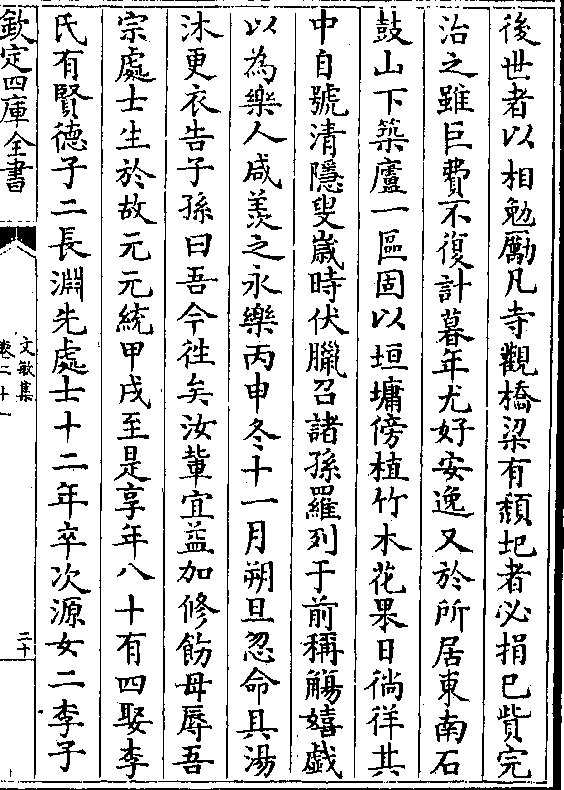 後世者以相勉勵凡寺觀橋梁有頽圮者必捐已貲完
治之雖巨費不復計暮年尤好安逸又於所居東南石
鼓山下築廬一區固以垣墉傍植竹木花果日徜徉其
中自號清隱叟嵗時伏臘召諸孫羅列于前稱觴嬉戯
以為樂人咸羡之永樂丙申冬十一月朔旦忽命具湯
沐更衣告子孫曰吾今徃矣汝輩宜益加修飭毋辱吾
宗處士生於故元元統甲戌至是享年八十有四娶李
氏有賢德子二長淵先處士十二年卒次源女二李子
欽定四庫全書
文敏集
卷二十一
二十